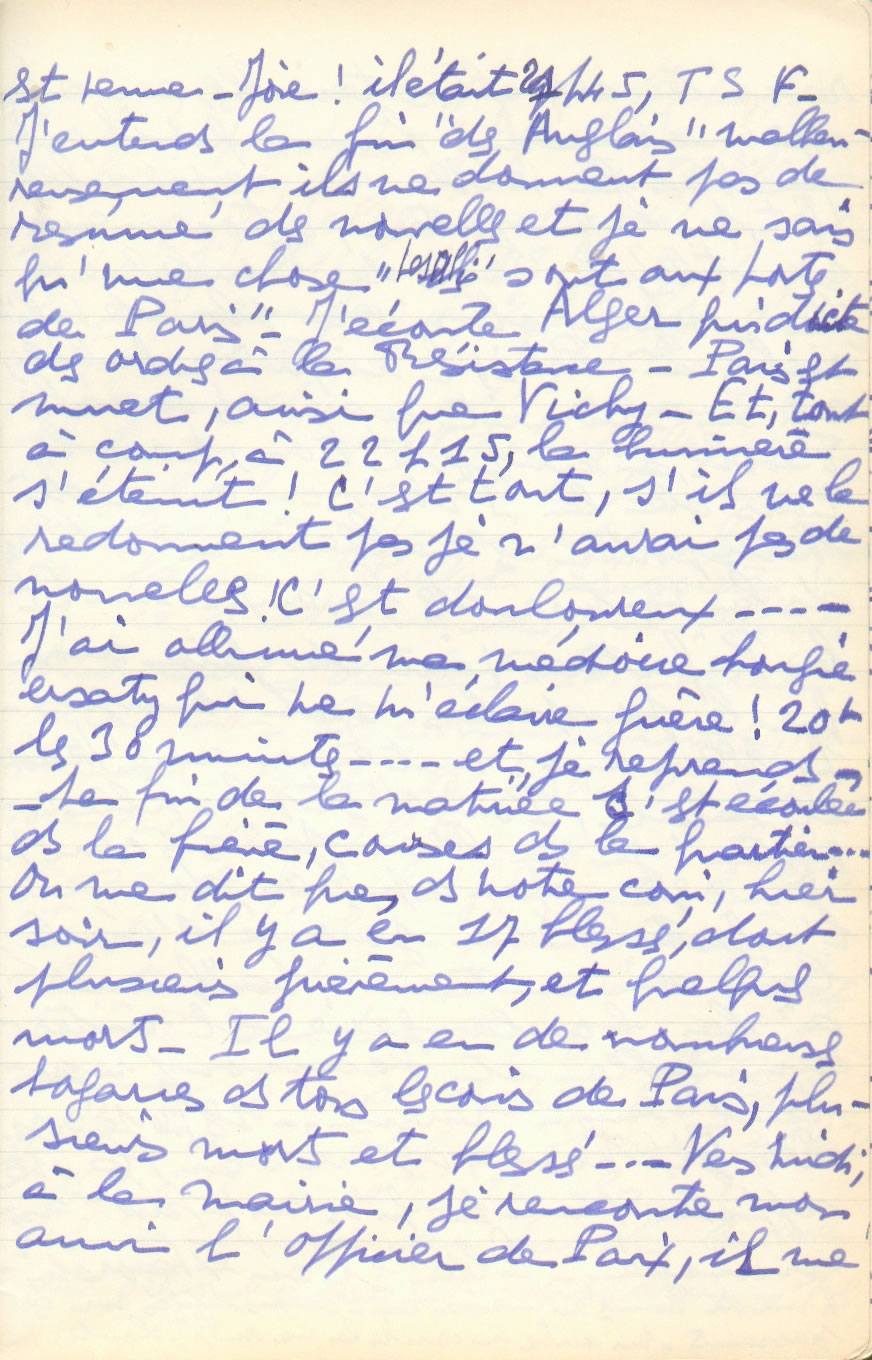 est venue - Joie ! il était 21h45, T S F -
J'entends la fin "des Anglais" malheu-
reusement ils ne donnent pas de
résumé des nouvelles et je ne sais
qu'une chose "les Alliés" sont aux portes
de Paris" - J'écoute Alger qui dicte
des ordres à la Résistance - Paris est
muet, ainsi que Vichy - Et, tout
à coup, à 22h15, la lumière
s'éteint ! C'est tout, s'ils ne la
redonnent pas je n'aurai pas de
nouvelles ! C'est douloureux ----
J'ai allumé ma médiocre bougie
ersatz qui ne m'éclaire guère ! 20h
les 30 minutes ---- et, je reprends -
- La fin de la matinée s'est écoulée
ds la fièvre, courses ds le quartier...
On me dit que, ds notre coin, hier
soir, il y a eu 17 blessés, dont
plusieurs grièvement, et quelques
morts - Il y a eu de nombreuses
bagarres ds tous les coins de Paris, plu-
sieurs morts et blessés --- Vers midi,
à la mairie, je rencontre mon
ami l'officier de Paix, il me